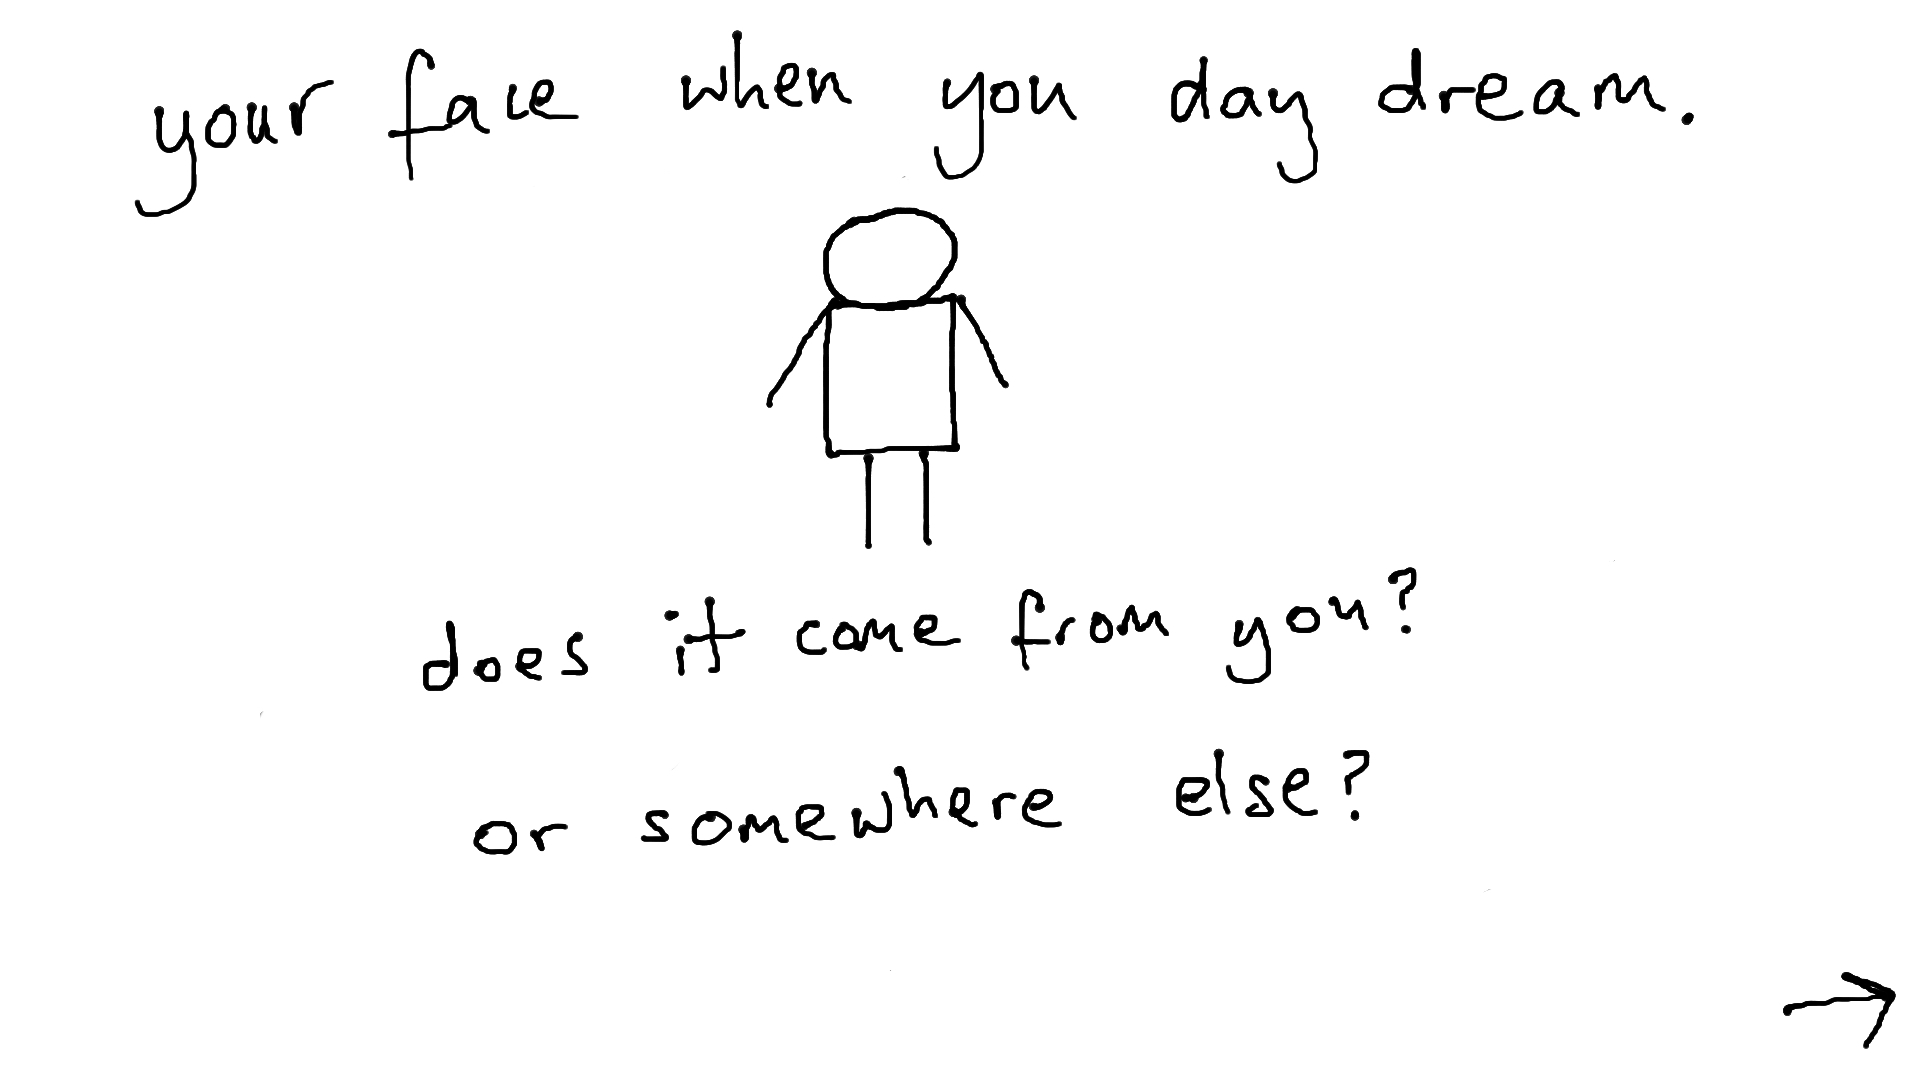 your face when you day dream.
does it come from you?
or somewhere else?